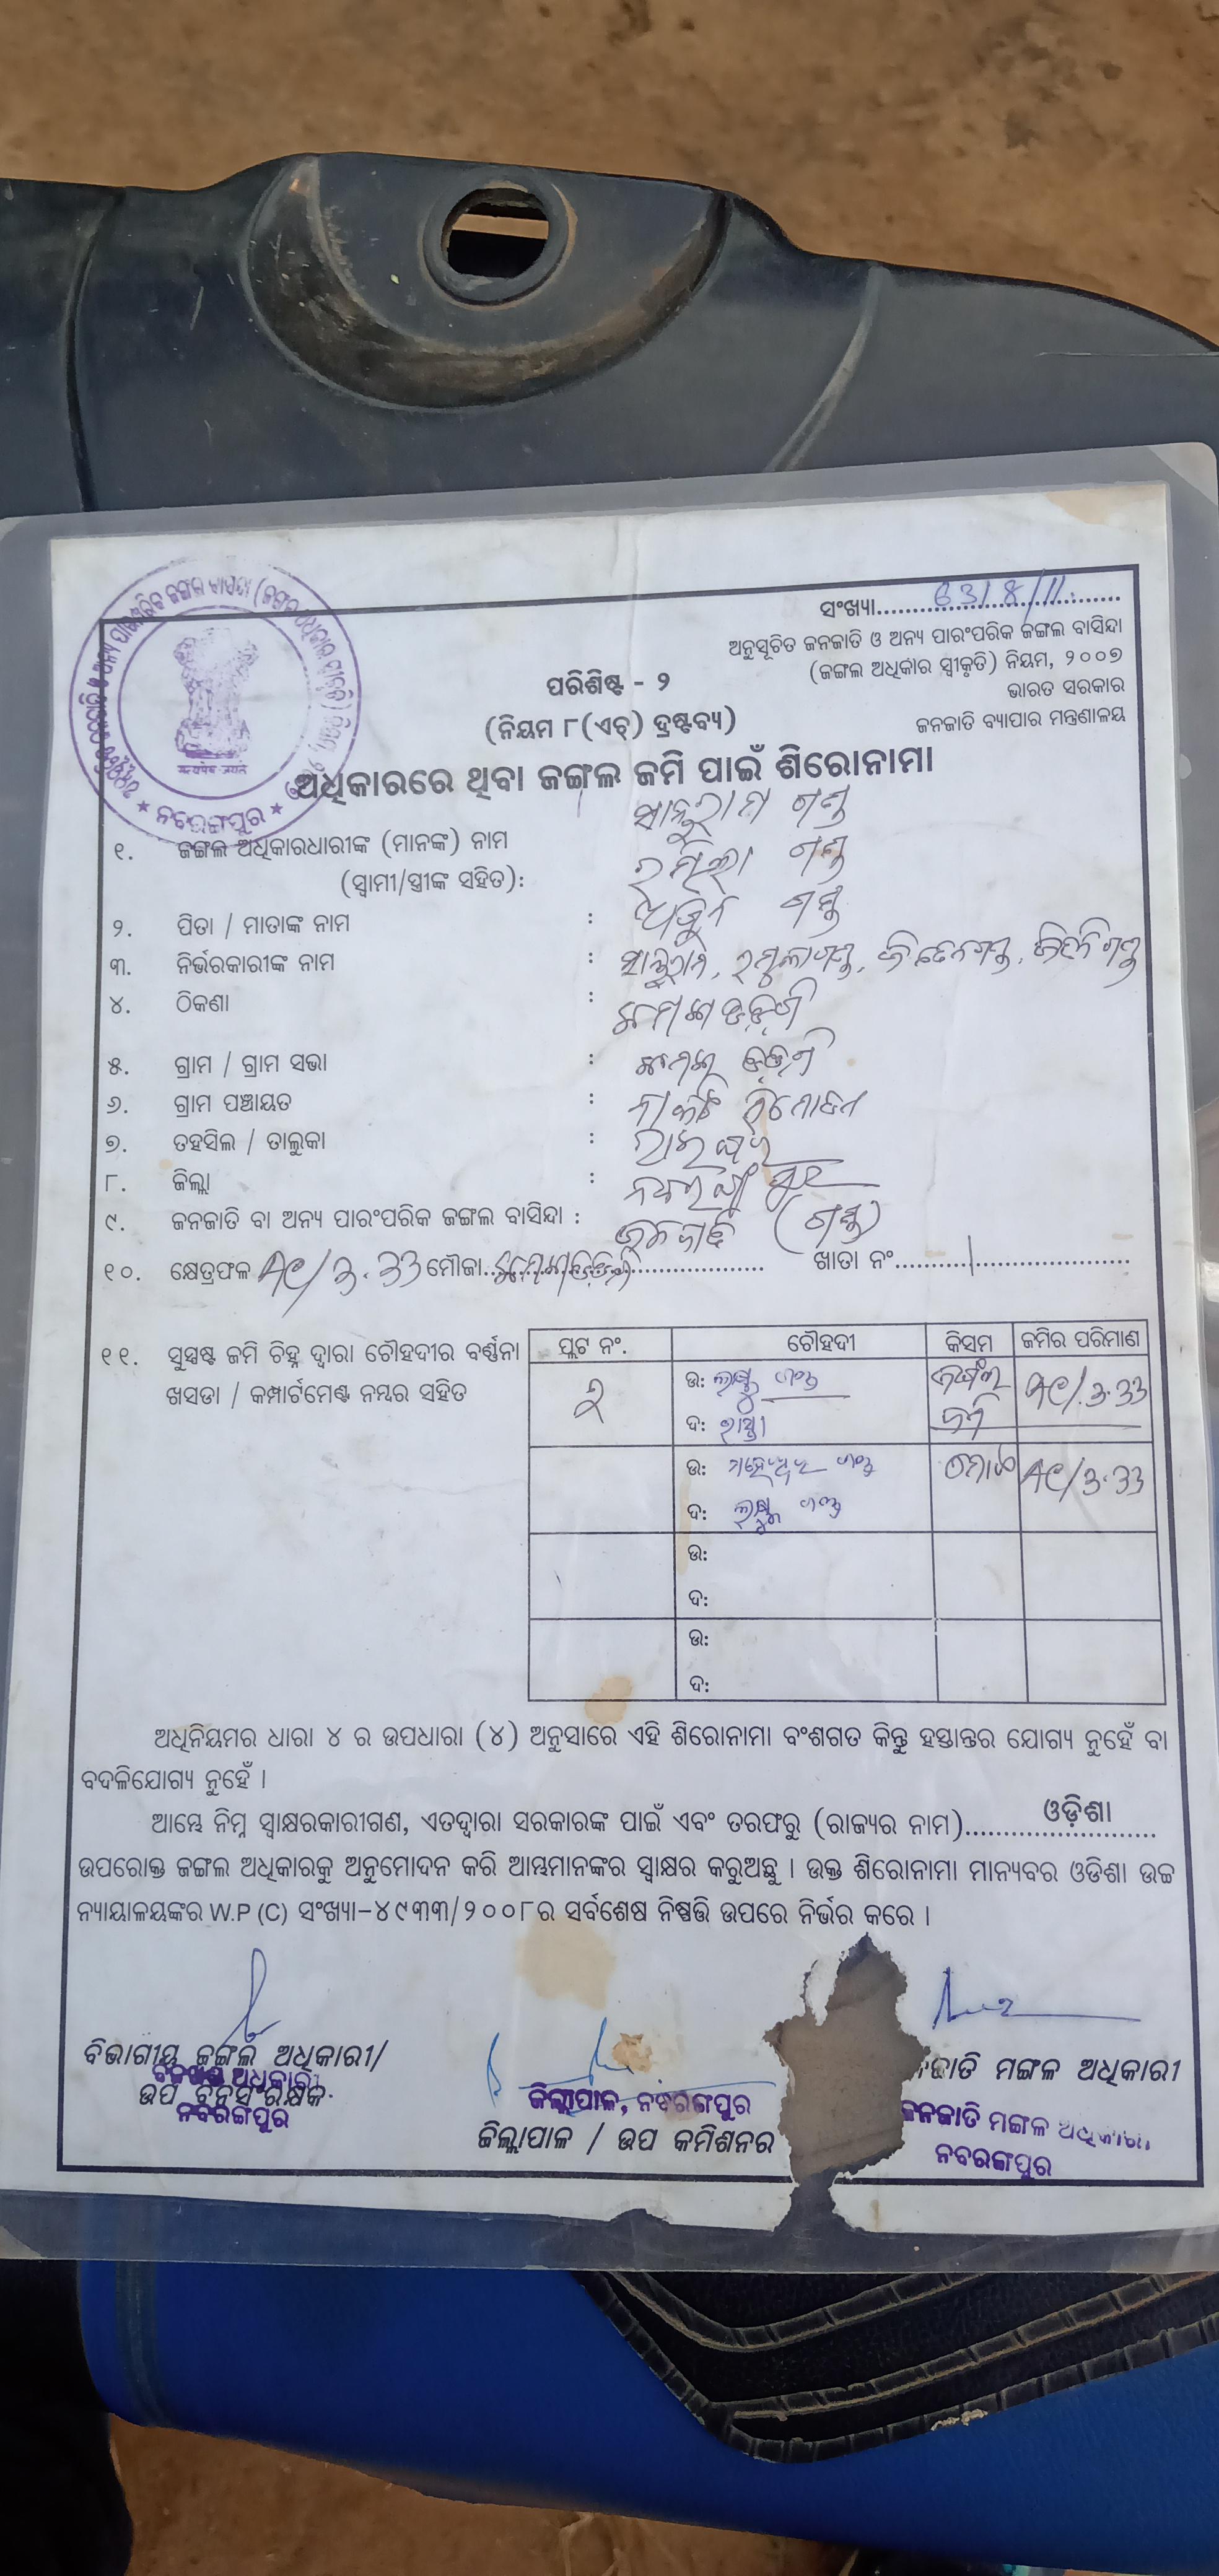 ସଂଖ୍ୟା
ଅନୁସୂଚିତ ଜନଜାତି ଓ ଅନ୍ୟ ପାରଂପରିକ ଜଙ୍ଗଲ ବାସିନ୍ଦା
(ଜଙ୍ଗଲ ଅଧିକାର ସ୍ୱୀକୃତି) ନିୟମ, ୨୦୦୭
ଭାରତ ସରକାର
ଜନଜାତି ବ୍ୟାପାର ମନ୍ତ୍ରଣାଳୟ
ପରିଶିଷ୍ଟ - ୨
(ନିୟମ ୮(ଏଚ୍) ଦ୍ରଷ୍ଟବ୍ୟ)
ନବରଙ୍ଗପୁର
ଅଧିକାରରେ ଥିବା ଜଙ୍ଗଲ ଜମି ପାଇଁ ଶିରୋନାମା
୧. ଜଙ୍ଗଲ ଅଧିକାରଧାରୀଙ୍କ (ମାନଙ୍କ) ନାମ
(ସ୍ୱାମୀ/ସ୍ତ୍ରୀଙ୍କ ସହିତ):
୨. ପିତା / ମାତାଙ୍କ ନାମ : ଅର୍ଜୁନ ଗଣ୍ଡ
୩. ନିର୍ଭରକାରୀଙ୍କ ନାମ :
୪. ଠିକଣା :
୫. ଗ୍ରାମ / ଗ୍ରାମ ସଭା :
୬. ଗ୍ରାମ ପଞ୍ଚାୟତ :
୭. ତହସିଲ / ତାଲୁକା : ରାଇଘର
୮. ଜିଲ୍ଲା : ନବରଙ୍ଗପୁର
୯. ଜନଜାତି ବା ଅନ୍ୟ ପାରଂପରିକ ଜଙ୍ଗଲ ବାସିନ୍ଦା : ଜନଜାତି (ଗଣ୍ଡ)
୧୦. କ୍ଷେତ୍ରଫଳ AC/3.33 ମୌଜା ଖାତା ନଂ
୧୧. ସୁସ୍ପଷ୍ଟ ଜମି ଚିହ୍ନ ଦ୍ୱାରା ଚୌହଦୀର ବର୍ଣ୍ଣନା
ଖସଡା / କମ୍ପାର୍ଟମେଣ୍ଟ ନମ୍ବର ସହିତ
ପ୍ଲଟ ନଂ. ଚୌହଦୀ କିସମ ଜମିର ପରିମାଣ
୨ ଉ: ଗଣ୍ଡ ଜଙ୍ଗଲ AC/.3.33
ଦ: ରାସ୍ତା ଜମି
ଉ: ଗଣ୍ଡ ମୋଟ AC/3.33
ଦ: ଗଣ୍ଡ
ଉ:
ଦ:
ଉ:
ଦ:
ଅଧିନିୟମର ଧାରା ୪ ର ଉପଧାରା (୪) ଅନୁସାରେ ଏହି ଶିରୋନାମା ବଂଶଗତ କିନ୍ତୁ ହସ୍ତାନ୍ତର ଯୋଗ୍ୟ ନୁହେଁ ବା
ବଦଳିଯୋଗ୍ୟ ନୁହେଁ ।
ଆମ୍ଭେ ନିମ୍ନ ସ୍ୱାକ୍ଷରକାରୀଗଣ, ଏତଦ୍ୱାରା ସରକାରଙ୍କ ପାଇଁ ଏବଂ ତରଫରୁ (ରାଜ୍ୟର ନାମ)........ଓଡ଼ିଶା........
ଉପରୋକ୍ତ ଜଙ୍ଗଲ ଅଧିକାରକୁ ଅନୁମୋଦନ କରି ଆମ୍ଭମାନଙ୍କର ସ୍ୱାକ୍ଷର କରୁଅଛୁ । ଉକ୍ତ ଶିରୋନାମା ମାନ୍ୟବର ଓଡିଶା ଉଚ୍ଚ
ନ୍ୟାୟାଳୟଙ୍କର W.P (C) ସଂଖ୍ୟା-୪୯୩୩/୨୦୦୮ର ସର୍ବଶେଷ ନିଷ୍ପତ୍ତି ଉପରେ ନିର୍ଭର କରେ ।
ବିଭାଗୀୟ ଜଙ୍ଗଲ ଅଧିକାରୀ/
ବନଖଣ୍ଡ ଅଧିକାରୀ
ଉପ ବନସଂରକ୍ଷକ
ନବରଙ୍ଗପୁର
ଜିଲ୍ଲାପାଳ, ନବରଙ୍ଗପୁର
ଜିଲ୍ଲାପାଳ / ଉପ କମିଶନର
ମଙ୍ଗଳ ଅଧିକାରୀ
ଜନଜାତି ମଙ୍ଗଳ ଅଧିକାରୀ
ନବରଙ୍ଗପୁର